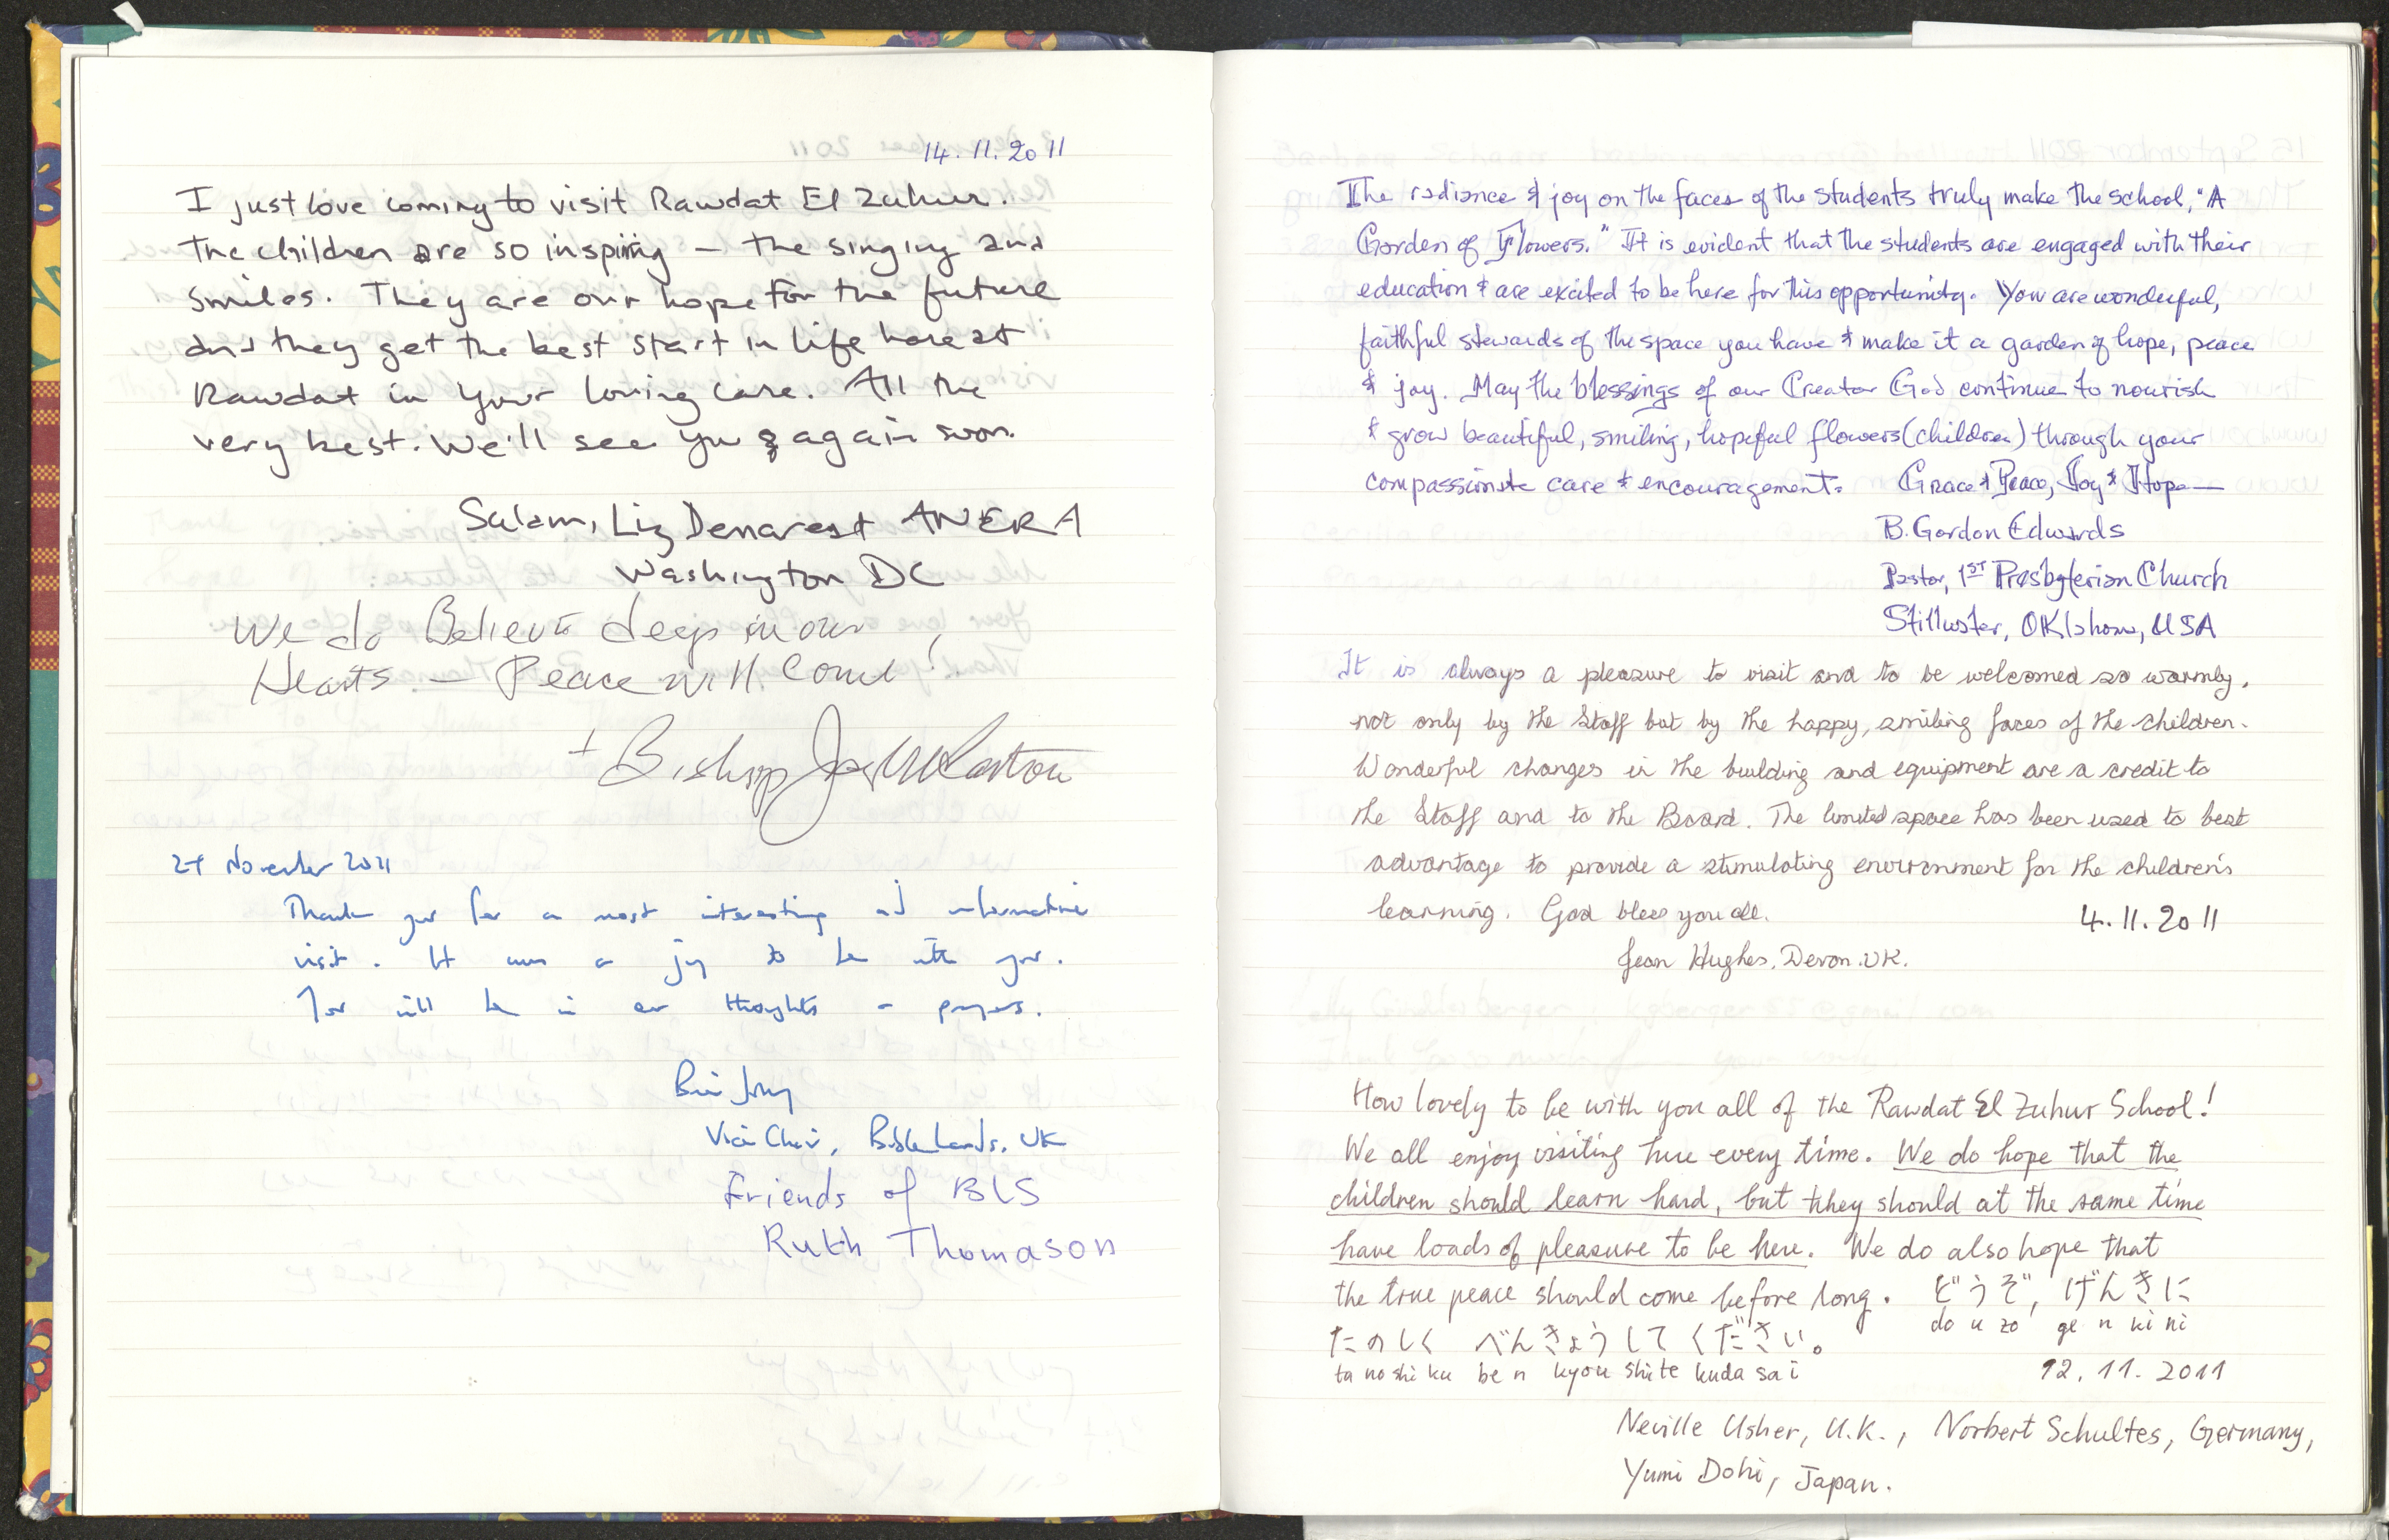 14.11.2011
I just love coming to visit Rawdat El Zuhur.
The children are so inspiring – the singing and
smiles. They are our hope for the future
and they get the best start in life here at
Rawdat in your loving care. All the
very best. We'll see you again soon.
Salam, Liz Demarest ANERA
Washington DC
We do Believe deep in our
Hearts – Peace will Come!
+ Bishop
November 2011
Thank you for a most interesting and informative
visit. It was a joy to be with you.
You will be in our thoughts – prayers.
Vice Chair, BibleLands, UK
Friends of BLS
Ruth Thomason
The radiance & joy on the faces of the students truly make the school, "A
Garden of Flowers." It is evident that the students are engaged with their
education & are excited to be here for this opportunity. You are wonderful,
faithful stewards of the space you have & make it a garden of hope, peace
& joy. May the blessings of our Creator God continue to nourish
& grow beautiful, smiling, hopeful flowers (children) through your
compassionate care & encouragement. Grace & Peace, Joy & Hope—
B. Gordon Edwards
Pastor, 1ST Presbyterian Church
Stillwater, Oklahoma, USA
It is always a pleasure to visit and to be welcomed so warmly,
not only by the Staff but by the happy, smiling faces of the children.
Wonderful changes in the building and equipment are a credit to
the Staff and to the Board. The limited space has been used to best
advantage to provide a stimulating environment for the children's
learning. God bless you all. 4.11.2011
Jean Hughes, Devon. UK.
How lovely to be with you all of the Rawdat El Zuhur School!
We all enjoy visiting here every time. We do hope that the
children should learn hard, but they should at the same time
have loads of pleasure to be here. We do also hope that
the true peace should come before long. どうぞ, げんきに
do u zo ge n ki ni
たのしく べんきょうして ください。
ta no shi ku be n kyou shite kuda sa i
12.11.2011
Neville Usher, U.K., Norbert Schultes, Germany,
Yumi Dohi, Japan.